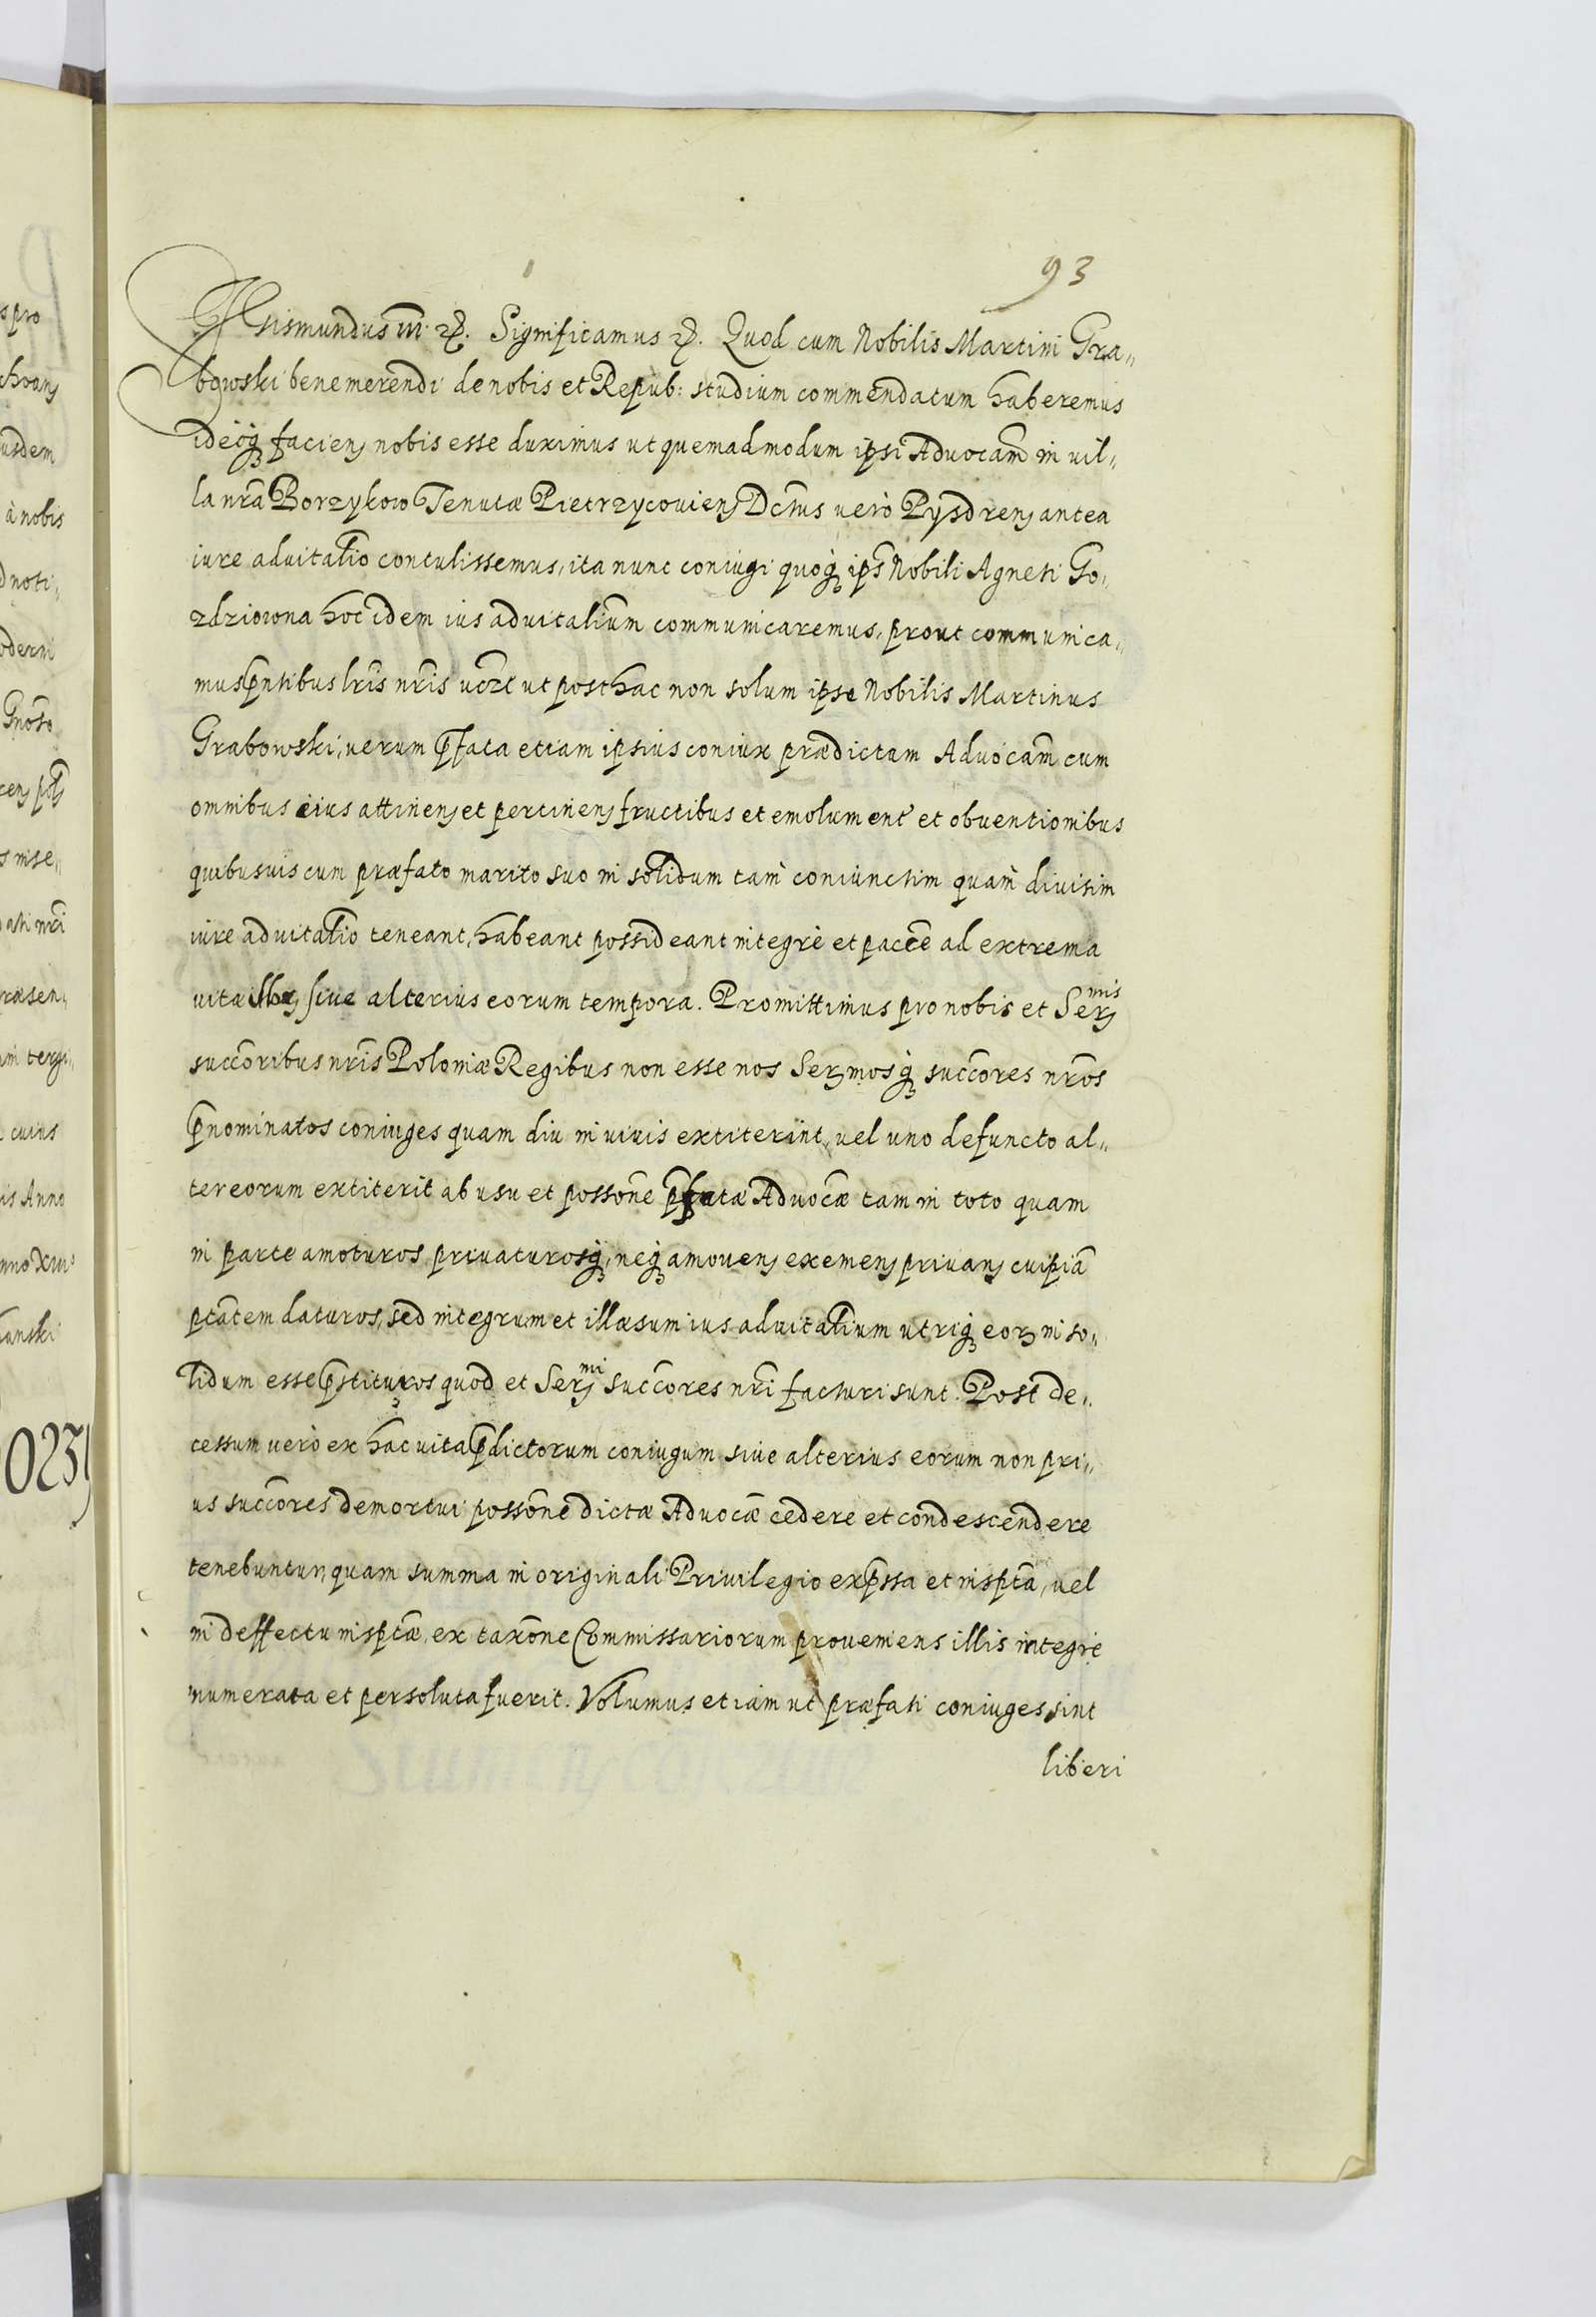 93
Sigismundus III. etc. Significamus etc. Quod cum Nobilis Martini Gra„
bowski benemerendi de nobis et Repub: studium commendatum haberemus
ideoq, faciens nobis esse duximus ut quemadmodum ipsi Advocam̃ in vil„
la nr̃a Borzykowo Tenutæ Pietrzycouiens Dctus verò Pysdrens antea
iure aduitalio contulissemus, ita nunc coniugi quoq, ips̃ Nobili Agneti Go„
zdziowna hoc idem ius aduitalium communicaremus, prout communica„
mus pñtibus lr̃is nr̃is ucz̃t ut posthac non solum ipse Nobilis Martinus
Grabowski, uerum p̃fata etiam ipsius coniux prædictam Aduocam̃ cum
omnibus eius attinens et pertinens fructibus et emolument et obuentionibus
quibusuis cum præfato marito suo in solidum tam coniunctim quam diuisim
iure aduitalio teneant, habeant possideant integrè et paccẽ ad extrema
vitæ siue alterius eorum tempora. Promittimus pro nobis et Ser mis
succoribus nr̃is Poloniæ Regibus non esse nos Sermosq, succores nr̃os
p̃nominatos coniuges quam diu in uiuis extiterint, uel uno defuncto al„
ter eorum extiterit ab usu et possoñe p̃fatæ Aduocæ̃ tam in toto quam
in parte amoturos priuaturosq, neq, amouens exemens priuans cuipiã
ptãtem daturos, sed integrum et illæsum ius aduitalium utriq, eor, in so„
lidum esse p̃stituros quod et Ser mi succores nr̃i facturi sunt. Post de„
cessum uerò ex hac uita p̃dictorum coniugum siue alterius eorum non pri„
us succores demortui possoñe dictæ Aduocæ̃ cedere et condescendere
tenebuntur, quam summa in originali Priuilegio exp̃ssa et insptã, uel
in deffectu insptæ̃, ex taxoñe Commissariorum proueniens illis integrè
numerata et persoluta fuerit. Volumus etiam ut præfati coniuges sint
liberi